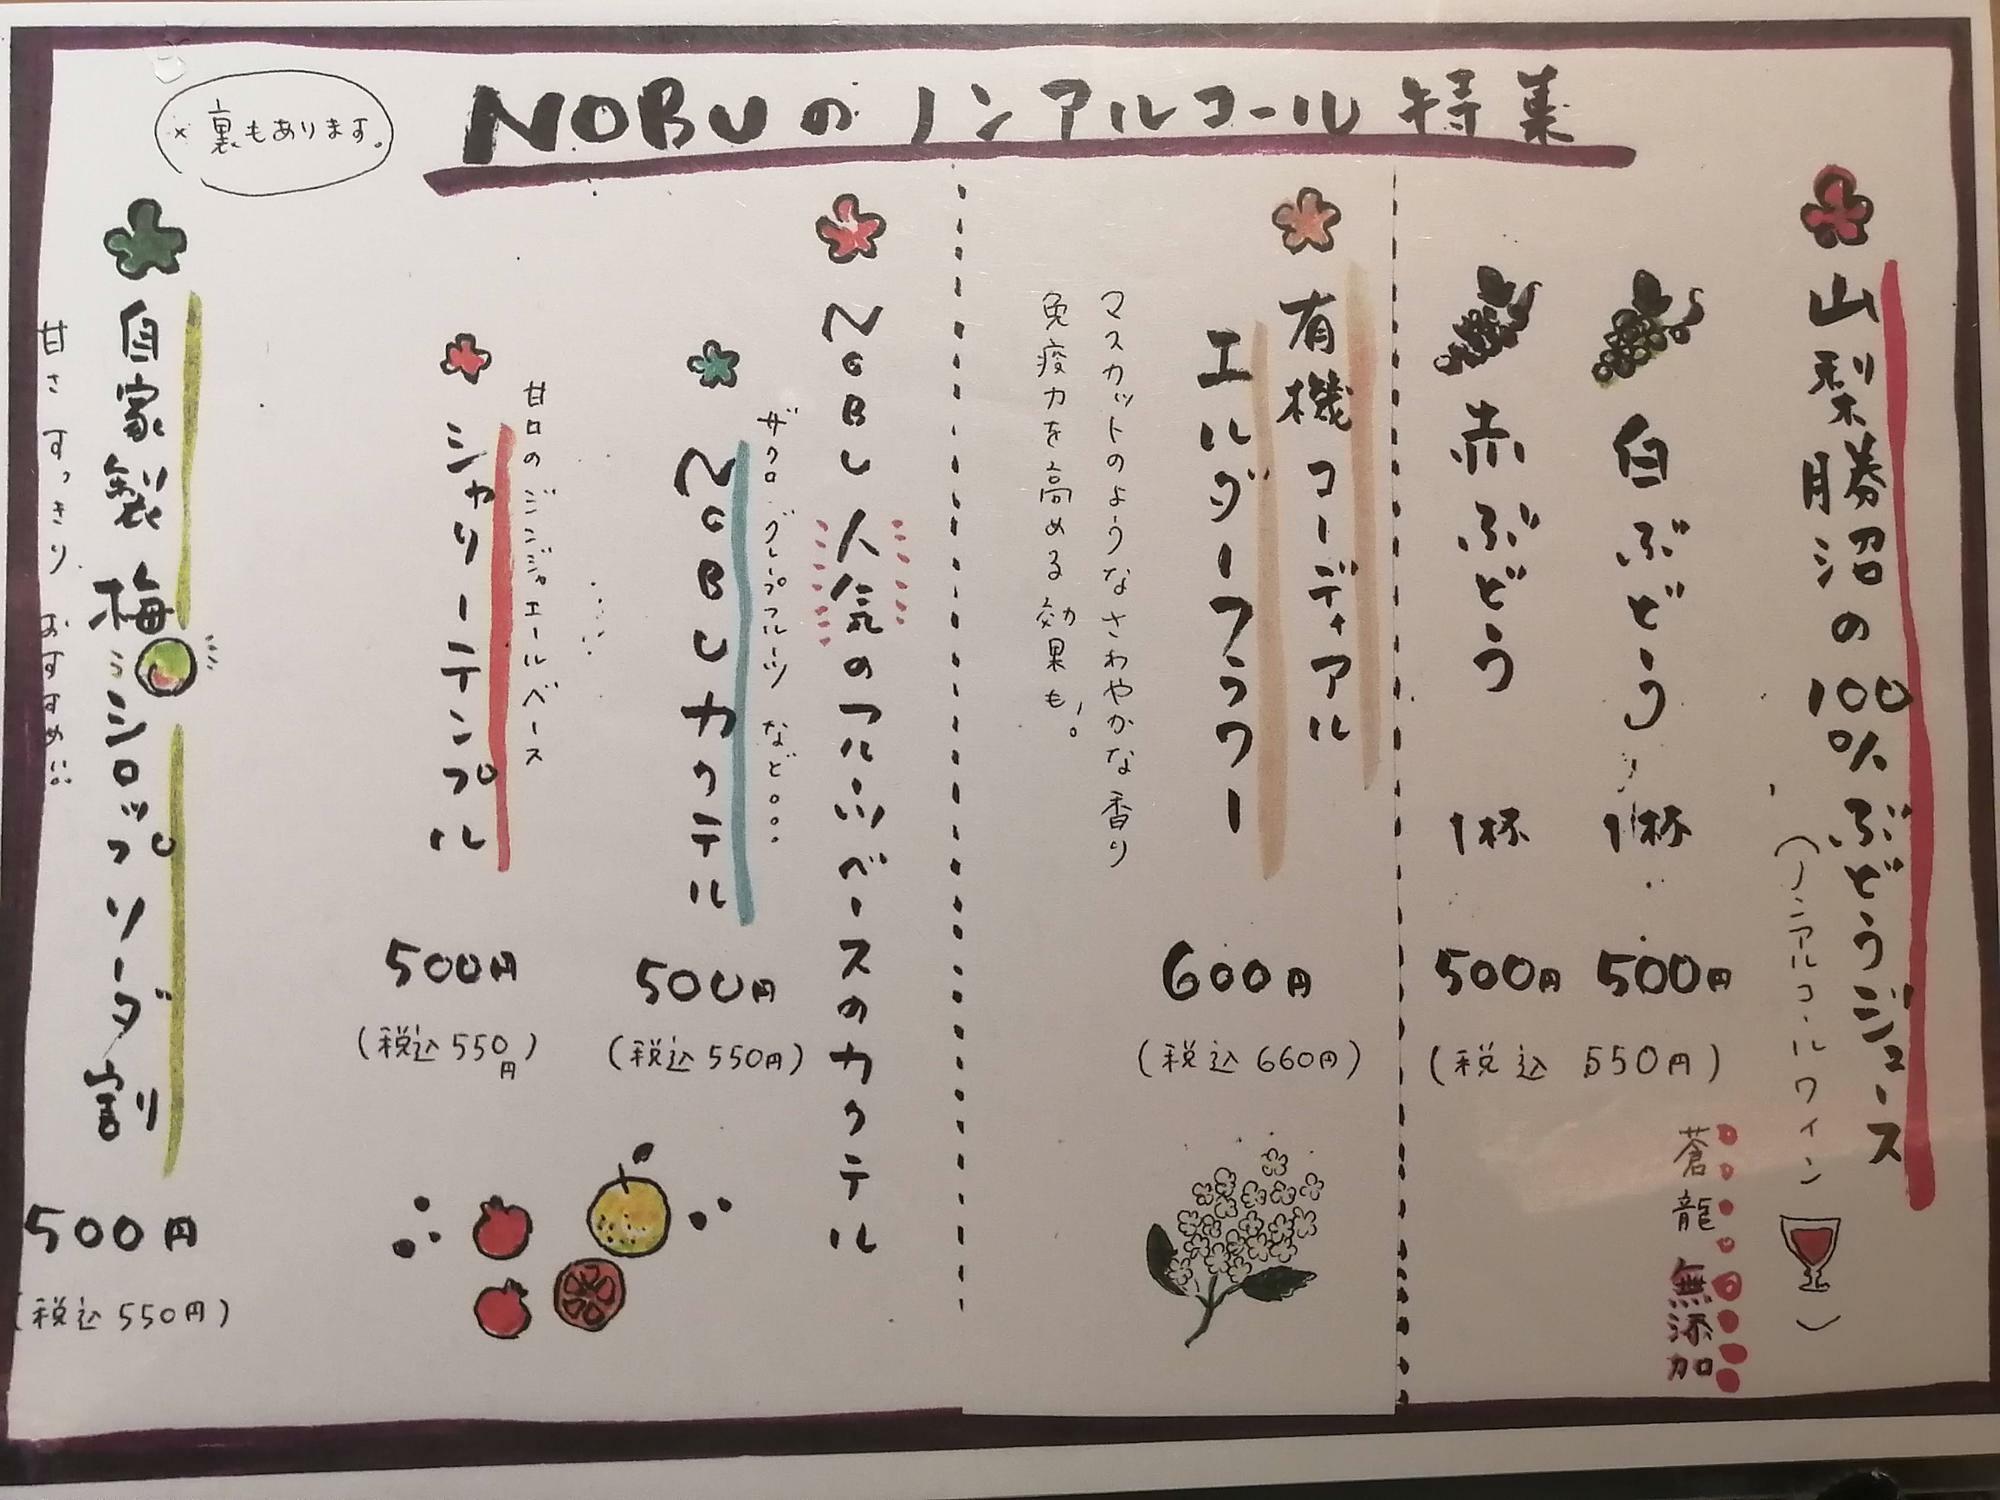 NOBUのノンアルコール特集
※裏もあります。
山梨勝沼の100%ぶどうジュース
(ノンアルコールワイン)
白ぶどう 1杯 500円
赤ぶどう 1杯 500円
(税込 550円)
蒼龍 無添加
有機コーディアル
エルダーフラワー
600円
(税込 660円)
マスカットのようなさわやかな香り
免疫力を高める効果も。
NOBU人気のフルーツベースのカクテル
ザクロ・グレープフルーツ など。。。
NOBUカクテル
500円
(税込 550円)
甘口のジンジャエールベース
シャリーテンプル
500円
(税込 550円)
自家製 梅シロップソーダ割
500円
(税込 550円)
甘さ すっきり おすすめ